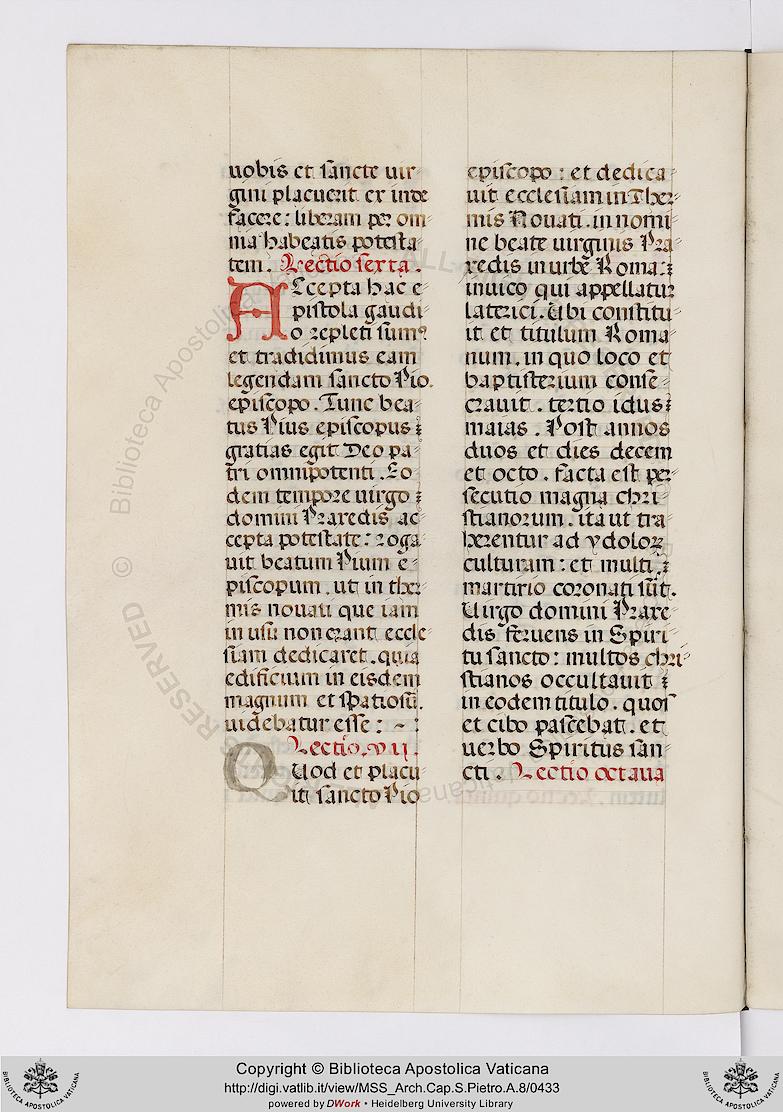 uobis et sancte uir-
gini placuerit ex inde
facere: liberam per om-
nia habeatis potesta-
tem. Lectio sexta.
ACcepta hac e-
pistola gaudi-
o repleti sumꝰ
et tradidimus eam
legendam sancto Pio.
episcopo. Tunc bea-
tus Pius episcopus
gratias egit Deo pa-
tri omnipotenti. Eo-
dem tempore uirgo
domini Praxedis ac-
cepta potestate: roga-
uit beatum Pium e-
piscopum. ut in ther-
mis nouati que iam
in usu non erant eccle-
siam dedicaret. quia
edificium in eisdem
magnum et spatiosū.
uidebatur esse: ~ :
Lectio.vii.
QUod et placu-
it sancto Pio
episcopo: et dedica-
uit ecclesiam in Ther-
mis Nouati. in nomi-
ne beate uirginis Pra-
xedis in urbe Roma:
inuico qui appellatur
laterici. Ubi constitu-
it et titulum Roma-
num. in quo loco et
baptisterium conse-
crauit. tertio idus
maias. Post annos
duos et dies decem
et octo. facta est per-
secutio magna chri-
stianorum. ita ut tra-
herentur ad ydoloꝝ
culturam: et multi.
martirio coronati sūt.
Uirgo domini Praxe-
dis feruens in Spiri-
tu sancto: multos chri-
stianos occultauit
in eodem titulo. quos
et cibo pascebat. et
uerbo Spiritus san-
cti. Lectio octaua
Copyright © Biblioteca Apostolica Vaticana
http://digi.vatlib.it/view/MSS_Arch.Cap.S.Pietro.A.8/0433
powered by DWork • Heidelberg University Library